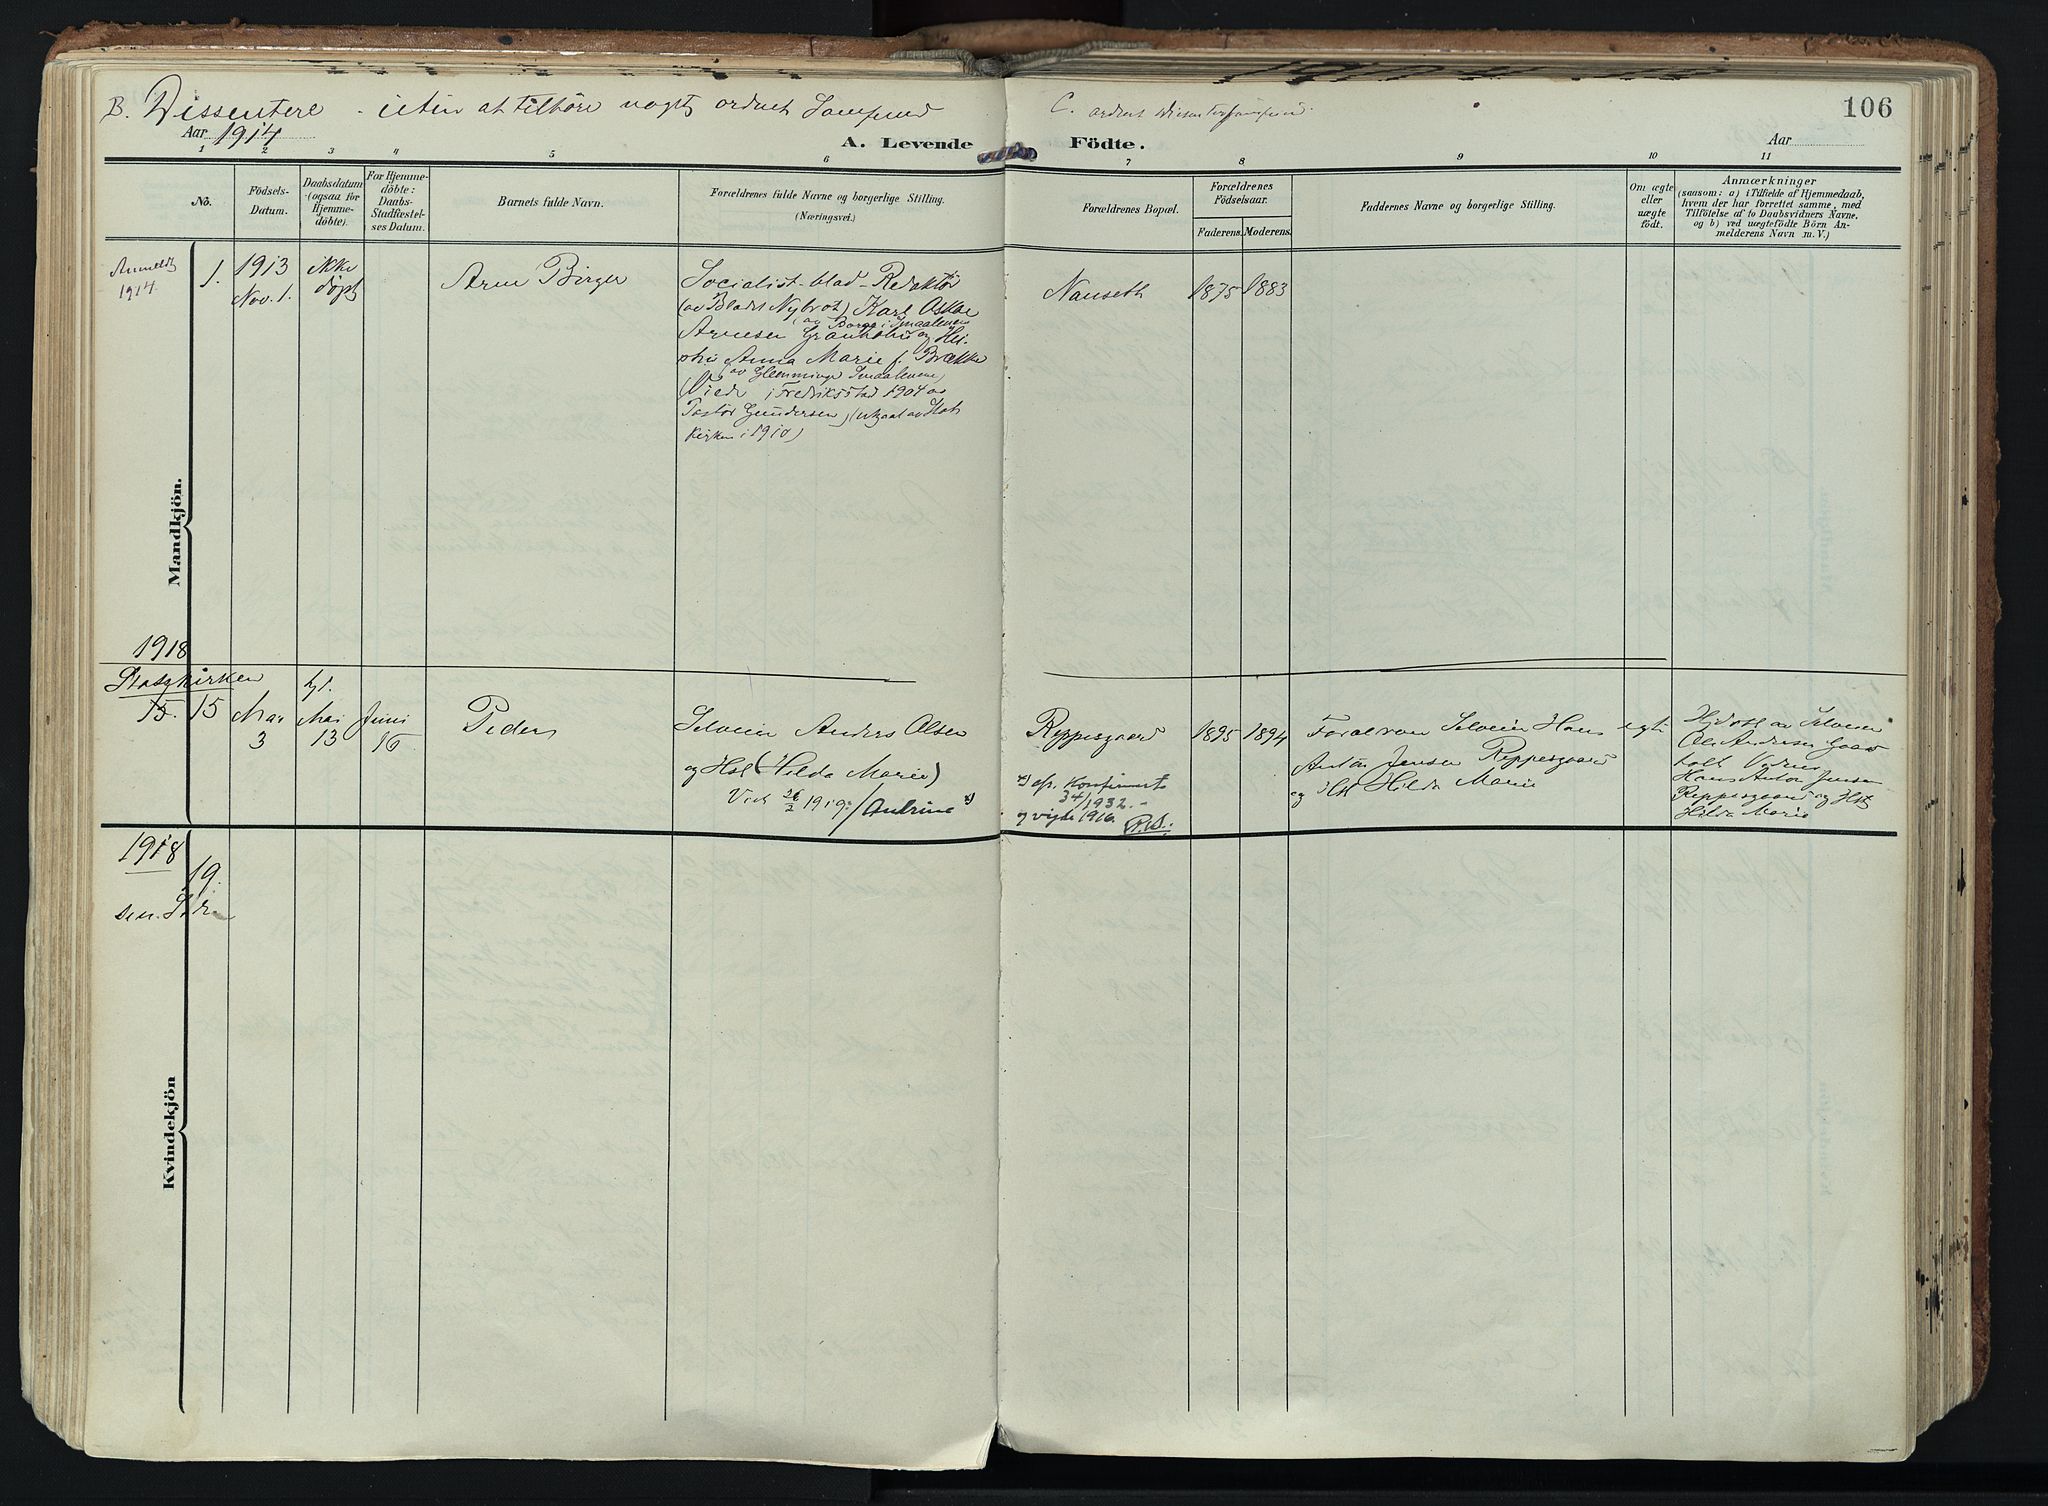 B. Dissentere - uten at tilhöre noget ordnet Samfund
C. ordnet Dissentersamfund.
106
Aar 1914
A. Levende Födte.
Aar
1 2 3 4 5 6 7 8 9 10 11
No.
Födsels-Datum.
Daabsdatum (ogsaa for Hjemmedöbte).
For Hjemmedöbte: Daabs-Stadfæstelses Datum.
Barnets fulde Navn.
Forældrenes fulde Navne og borgerlige Stilling.
(Næringsvei.)
Forældrenes Bopæl.
Forældrenes Födselsaar.
Faderens. Moderens.
Faddernes Navne og borgerlige Stilling.
Om ægte eller uægte födt.
Anmærkninger
(saasom: a) i Tilfælde af Hjemmedaab,
hvem der har forrettet samme, med
Tilföielse af to Daabsvidners Navne.
og b) ved uægtefödte Börn An-
melderens Navn m. V.)
Anmeldt
1914.
1.
1913
Nov. 1.
ikke
döpt
Arne Birger
Socialist-blad-Redaktör
(av Bladet Nybrot) Karl Oskar
(av Borge i Smaalenene
Arnesen Granholt og Hu-
stru Anna Marie f. Brække
(av Glemminge Smaalenene)
(Viede i Fredriksstad 1904 av
Pastor Gundersen) (utgaat av Stats
kirken i 1910)
Nanseth
1875
1883
Mandkjön.
1918
Statskirken
15. 15
Mai
3
hj.
Mai
13
Juni
16
Peder
Selveier Anders Olsen
og Hst (Hilda Marie)
Viet 26/2 1919. /Andrine x)
Reppesgaard
x) cfr. Konfirmerte
34/1932. -
og vigde 1916.
1895
1894
Foræl­dre­ne Selveier Hans
Anton Jensen Reppesgaard
og Hst Hilda Marie
egte
Hjdöbt av Selveier
Ole Andersen
Hans Anton Jensen
Reppesgaard og Hst
Hilda Marie
1918
19.
Kvindekjön